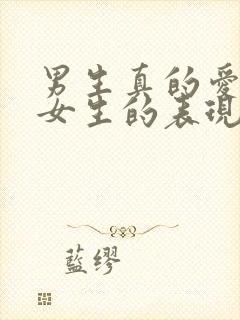 男生真的愛
女生的表現
藍繆